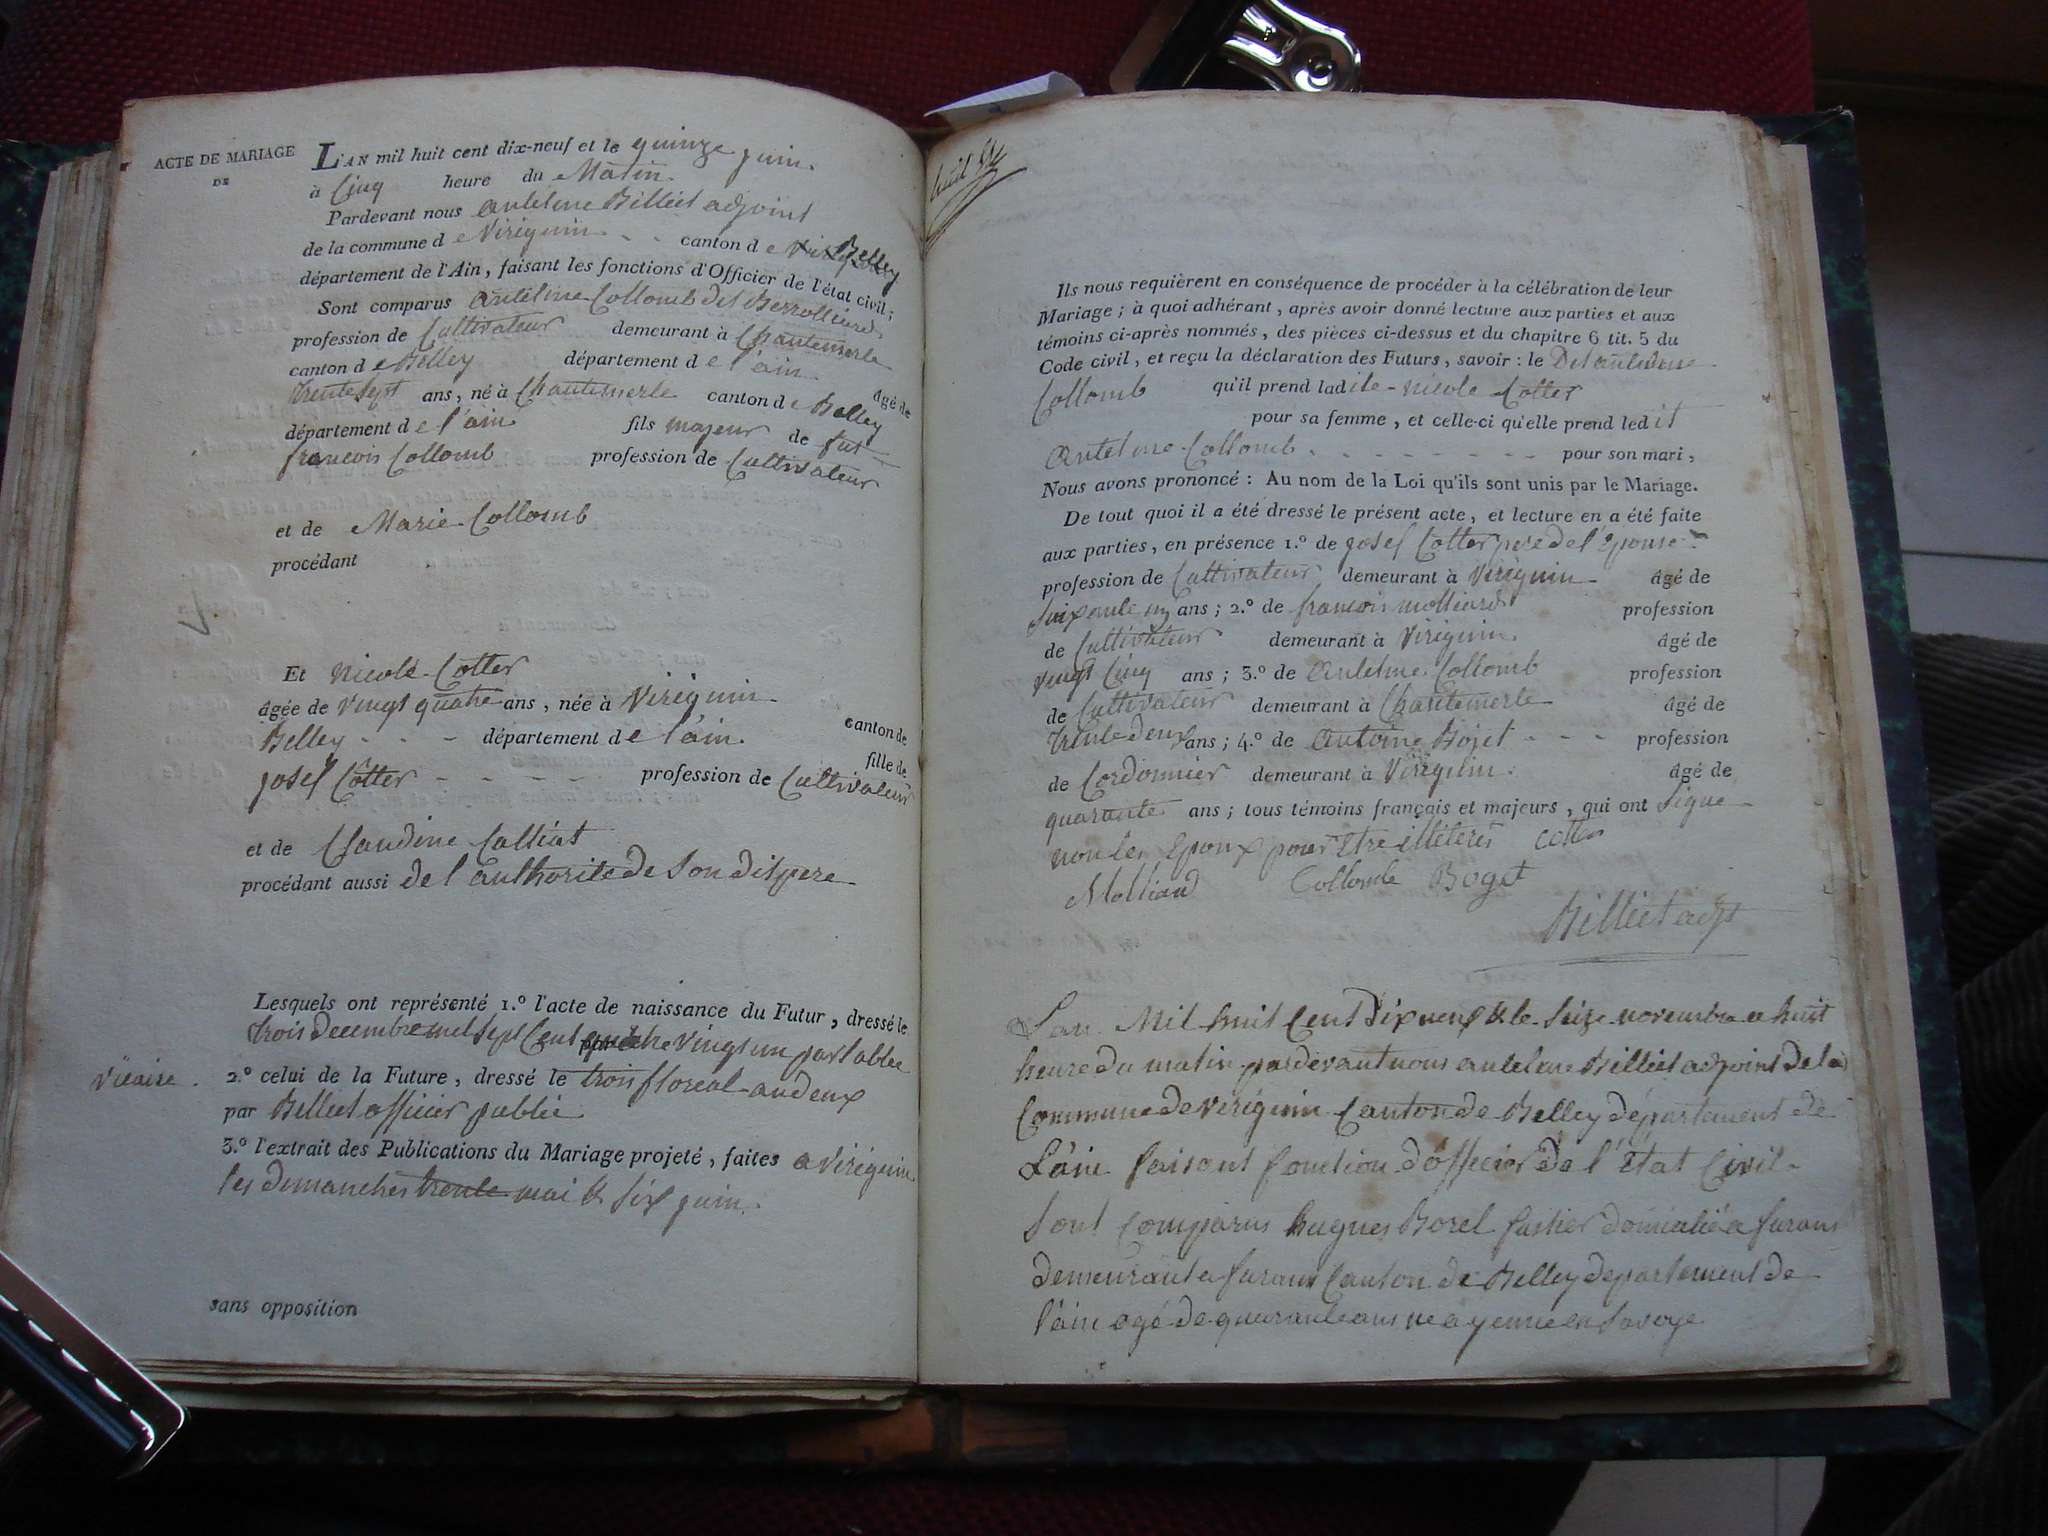 ACTE DE MARIAGE
DE
L'AN mil huit cent dix-neuf et le quinze juin
à Cinq heure du Matin
Pardevant nous antelme Billiet adjoint
de la commune de Virignin canton de Belley
département de l'Ain, faisant les fonctions d'Officier de l'état civil;
Sont comparus antelme Collomb dit
profession de Cultivateur demeurant à Chantemerle
canton de Belley département de l'ain âgé de
trente sept ans, né à Chantemerle canton de Belley
département de l'ain fils majeur de fut
francois Collomb profession de Cultivateur
et de Marie Collomb
procédant
Et Nicole Cotter
âgée de vingt quatre ans, née à Virignin canton de
Belley département de l'ain fille de
josef Cotter profession de Cultivateur
et de Claudine Calliat
procédant aussi de l'authorité de son dit pere
Lesquels ont représenté 1.º l'acte de naissance du Futur, dressé le
trois decembre mil sept Cent quatre vingt un par
Vicaire. 2.º celui de la Future, dressé le trois floreal an deux
par Billiet officier public
3.º l'extrait des Publications du Mariage projeté, faites a Virignin
les dimanches trente mai & six juin
sans opposition
Ils nous requièrent en conséquence de procéder à la célébration de leur
Mariage; à quoi adhérant, après avoir donné lecture aux parties et aux
témoins ci-après nommés, des pièces ci-dessus et du chapitre 6 tit. 5 du
Code civil, et reçu la déclaration des Futurs, savoir: le Dit antelme
Collomb qu'il prend ladite Nicole Cotter
pour sa femme, et celle-ci qu'elle prend ledit
antelme Collomb pour son mari,
Nous avons prononcé: Au nom de la Loi qu'ils sont unis par le Mariage.
De tout quoi il a été dressé le présent acte, et lecture en a été faite
aux parties, en présence 1.º de josef Cotter pere de l'Epouse
profession de Cultivateur demeurant à Virignin âgé de
soixante un ans; 2.º de francois molliard profession
de Cultivateur demeurant à Virignin âgé de
vingt Cinq ans; 3.º de antelme Collomb profession
de Cultivateur demeurant à Chantemerle âgé de
trente deux ans; 4.º de antoine Bojet profession
de Cordonnier demeurant à Virignin âgé de
quarante ans; tous témoins français et majeurs, qui ont signé
non les Epoux pour Etre illeterés
Molliard Collombe Boget
Billiet adjt
L'an Mil huit Cent dix neuf & le seize novembre a huit
heure du matin pardevant nous antelme Billiet adjoint de la
Commune de virignin Canton de Belley département de
L'ain faisant fonction d'officier de l'Etat Civil
sont comparus hugues Borel domicilié a furans
demeurant a furans Canton de Belley departement de
l'ain agé de quarante ans né a yenne en Savoye